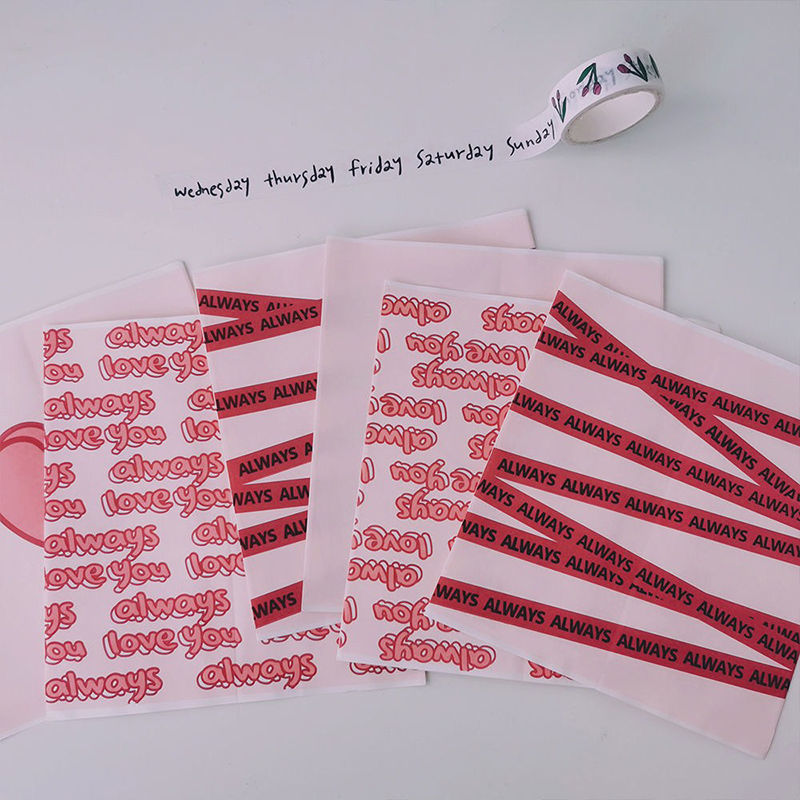 wednesday thursday friday saturday sunday
always
love you
always
love you
always
love you
always
love you
always
love you
always always
ALWAYS
ALWAYS ALWAYS
ALWAYS ALWAYS
ALWAYS
ALWAYS
ALWAYS
always
love you
always
love you
always
love you
always
love you
always
love you
always
ALWAYS ALWAYS
ALWAYS ALWAYS ALWAYS ALWAYS
ALWAYS ALWAYS ALWAYS ALWAYS
ALWAYS ALWAYS ALWAYS ALWAYS
ALWAYS ALWAYS ALWAYS ALWAYS
ALWAYS ALWAYS
ALWAYS ALWAYS ALWAYS ALWAYS